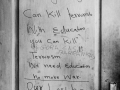 Can Kill Terrorist
With Education
you can Kill
Terrorism
We need Education
no more War
Our